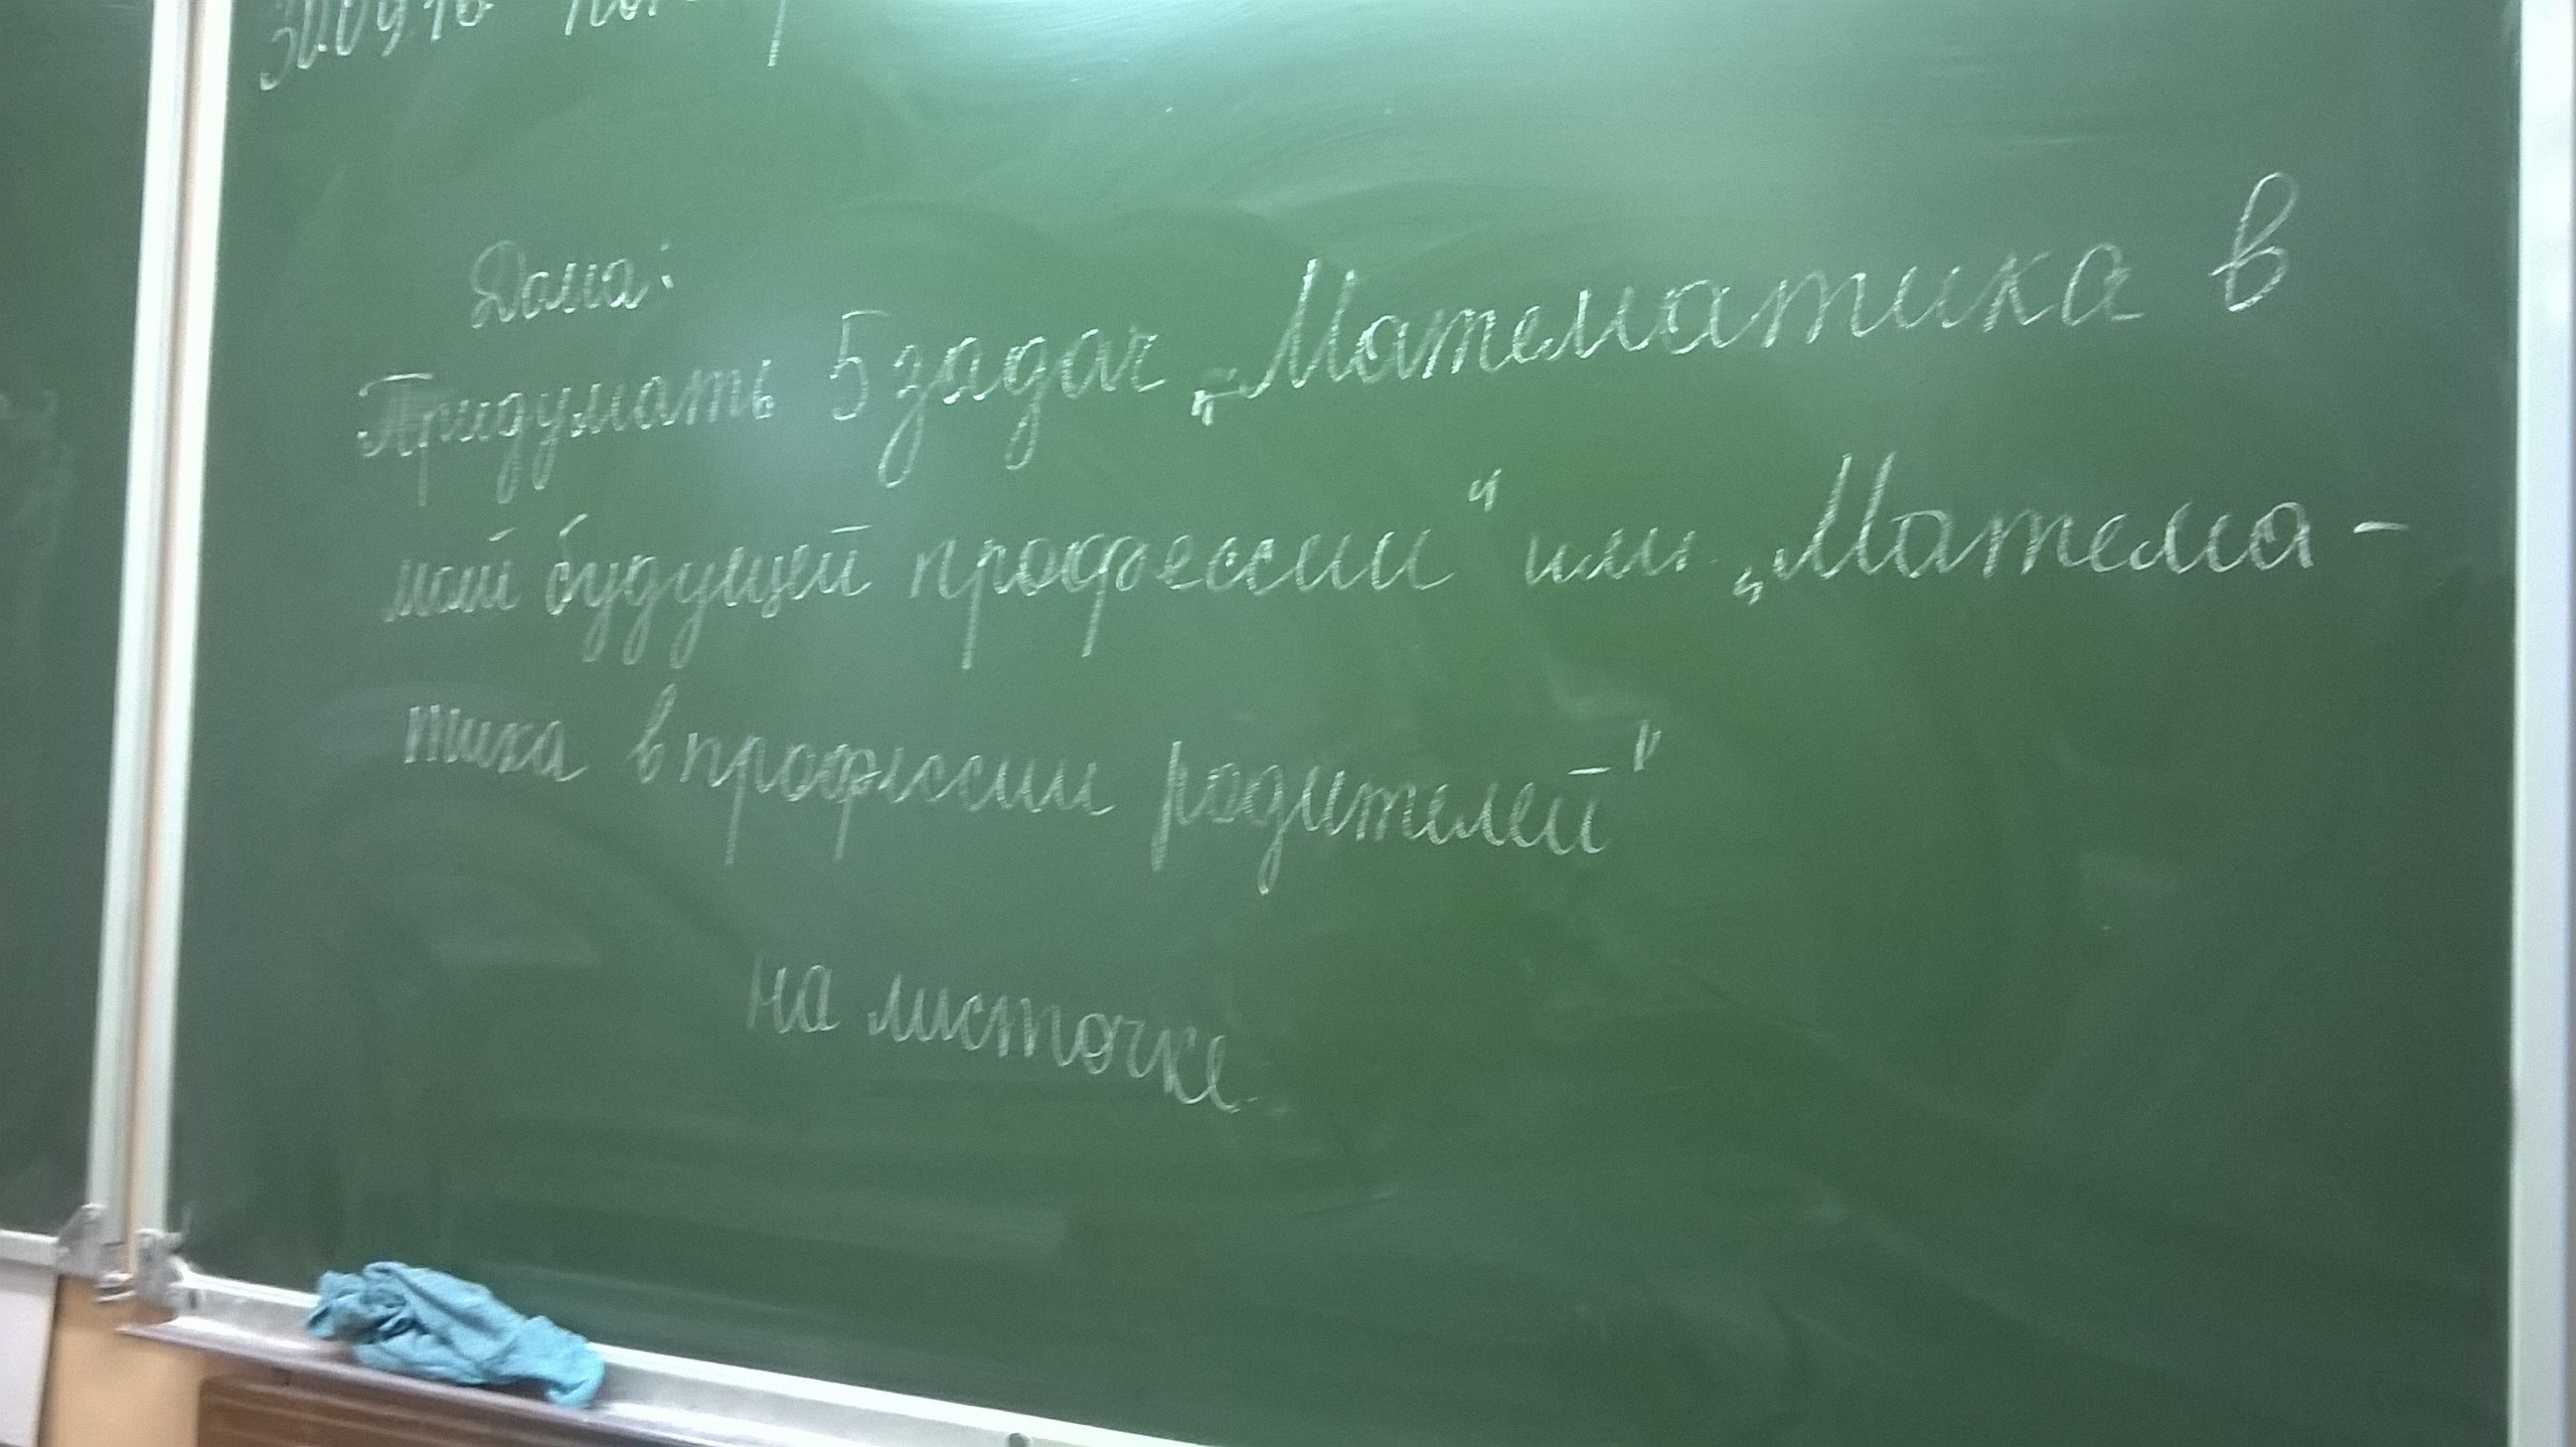 30.09.16
Дома:
Придумать 5 задач „Математика в
моей будущей профессии“ или „Матема-
тика в профессии родителей"
на листочке